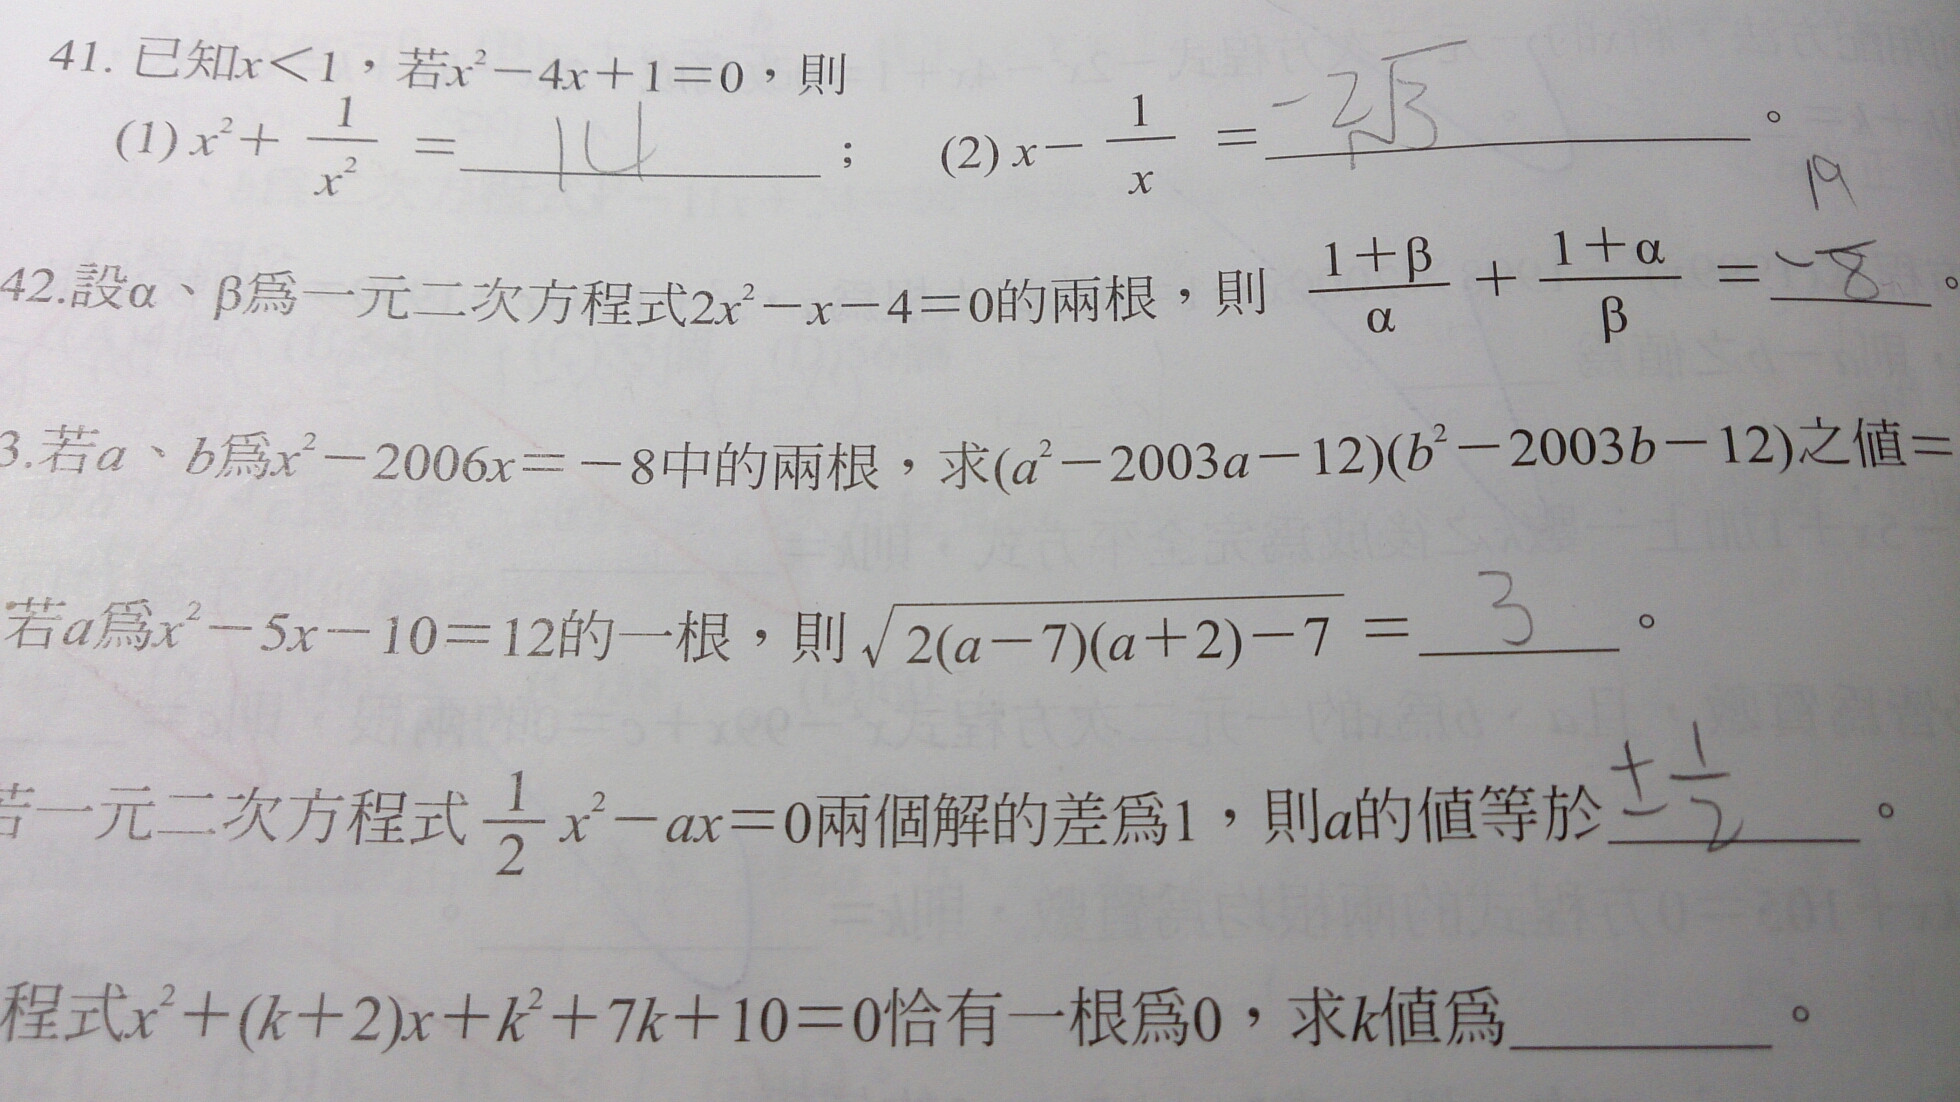 41. 已知x<1，若x²-4x+1=0，則
(1) x²+1/x²=14；(2) x-1/x=-2√3。
19
42.設α、β爲一元二次方程式2x²-x-4=0的兩根，則 (1+β)/α+(1+α)/β=-8。
3.若a、b爲x²-2006x=-8中的兩根，求(a²-2003a-12)(b²-2003b-12)之値=
若a爲x²-5x-10=12的一根，則√(2(a-7)(a+2)-7)=3。
若一元二次方程式1/2x²-ax=0兩個解的差爲1，則a的値等於±1/2。
程式x²+(k+2)x+k²+7k+10=0恰有一根爲0，求k値爲______。